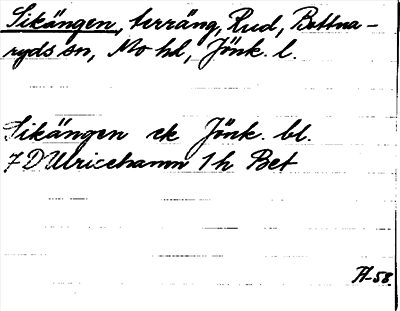 Sikängen, terräng, Rud, Bottna-
ryds sn, Mo hd, Jönk. l.
Sikängen ek Jönk. bl.
7 D Ulricehamn 1 h Bet
A-58